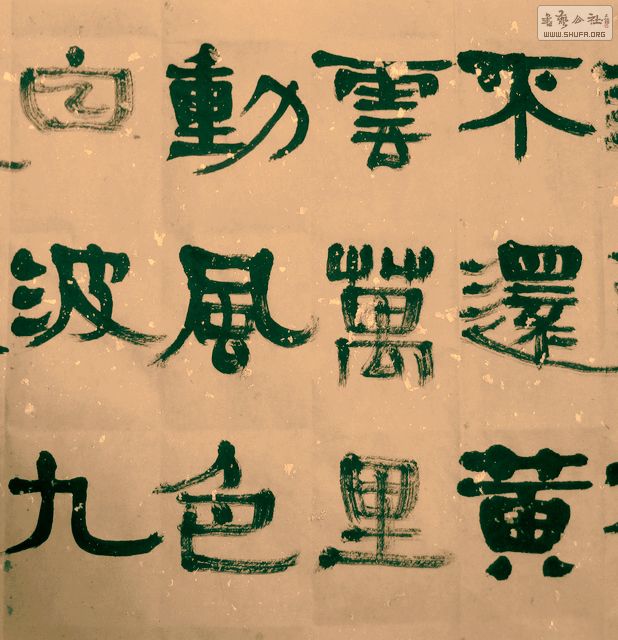 不還黃
雲萬里
動風色
白波九
書藝公社
WWW.SHUFA.ORG